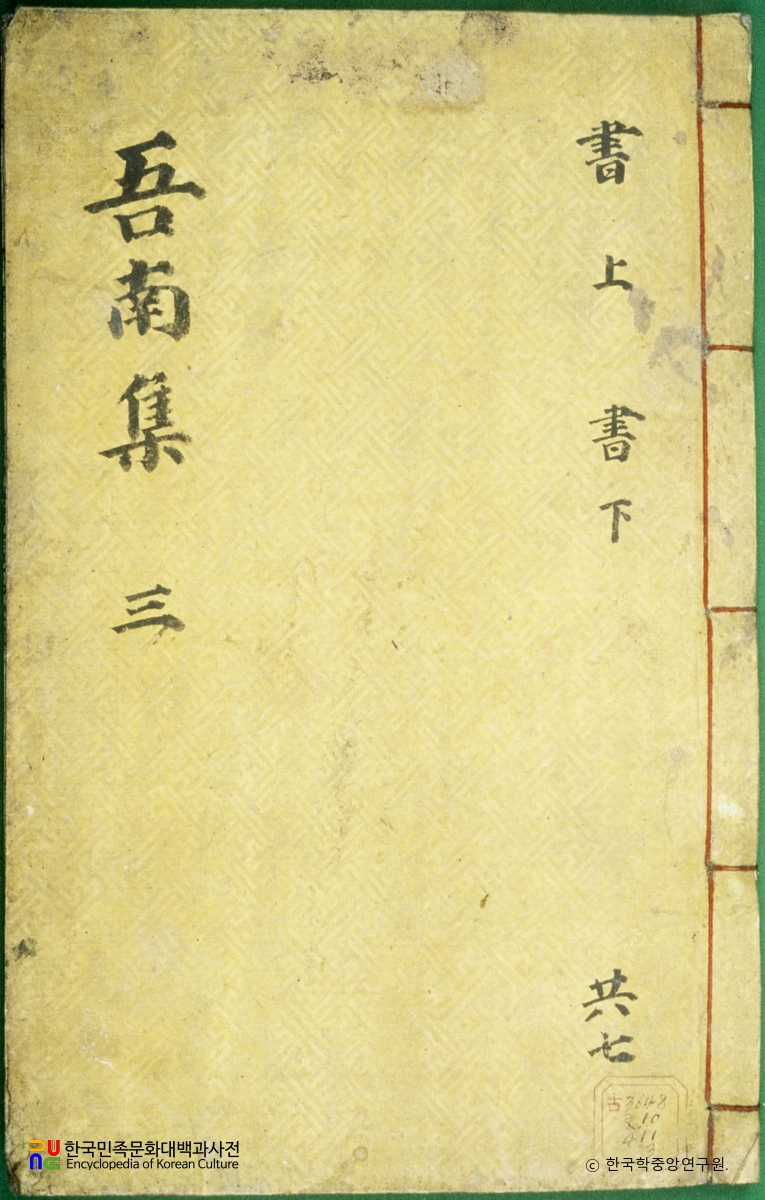 書上 書下
共七
吾南集 三
古 3648
10
한국민족문화대백과사전
Encyclopedia of Korean Culture
© 한국학중앙연구원.